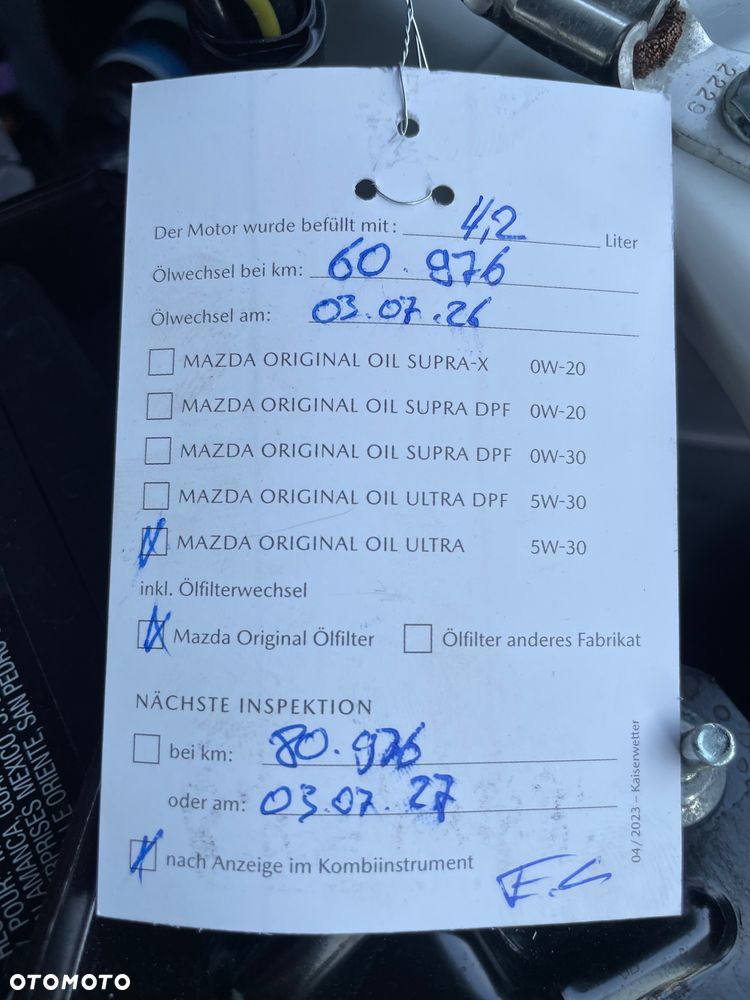 2229
Der Motor wurde befüllt mit: 4,2 Liter
Ölwechsel bei km: 60.976
Ölwechsel am: 03.07.26
MAZDA ORIGINAL OIL SUPRA-X 0W-20
MAZDA ORIGINAL OIL SUPRA DPF 0W-20
MAZDA ORIGINAL OIL SUPRA DPF 0W-30
MAZDA ORIGINAL OIL ULTRA DPF 5W-30
MAZDA ORIGINAL OIL ULTRA 5W-30
inkl. Ölfilterwechsel
Mazda Original Ölfilter Ölfilter anderes Fabrikat
NÄCHSTE INSPEKTION
bei km: 80.976
oder am: 03.07.27
nach Anzeige im Kombiinstrument
04/2023 – Kaiserwetter
OTOMOTO